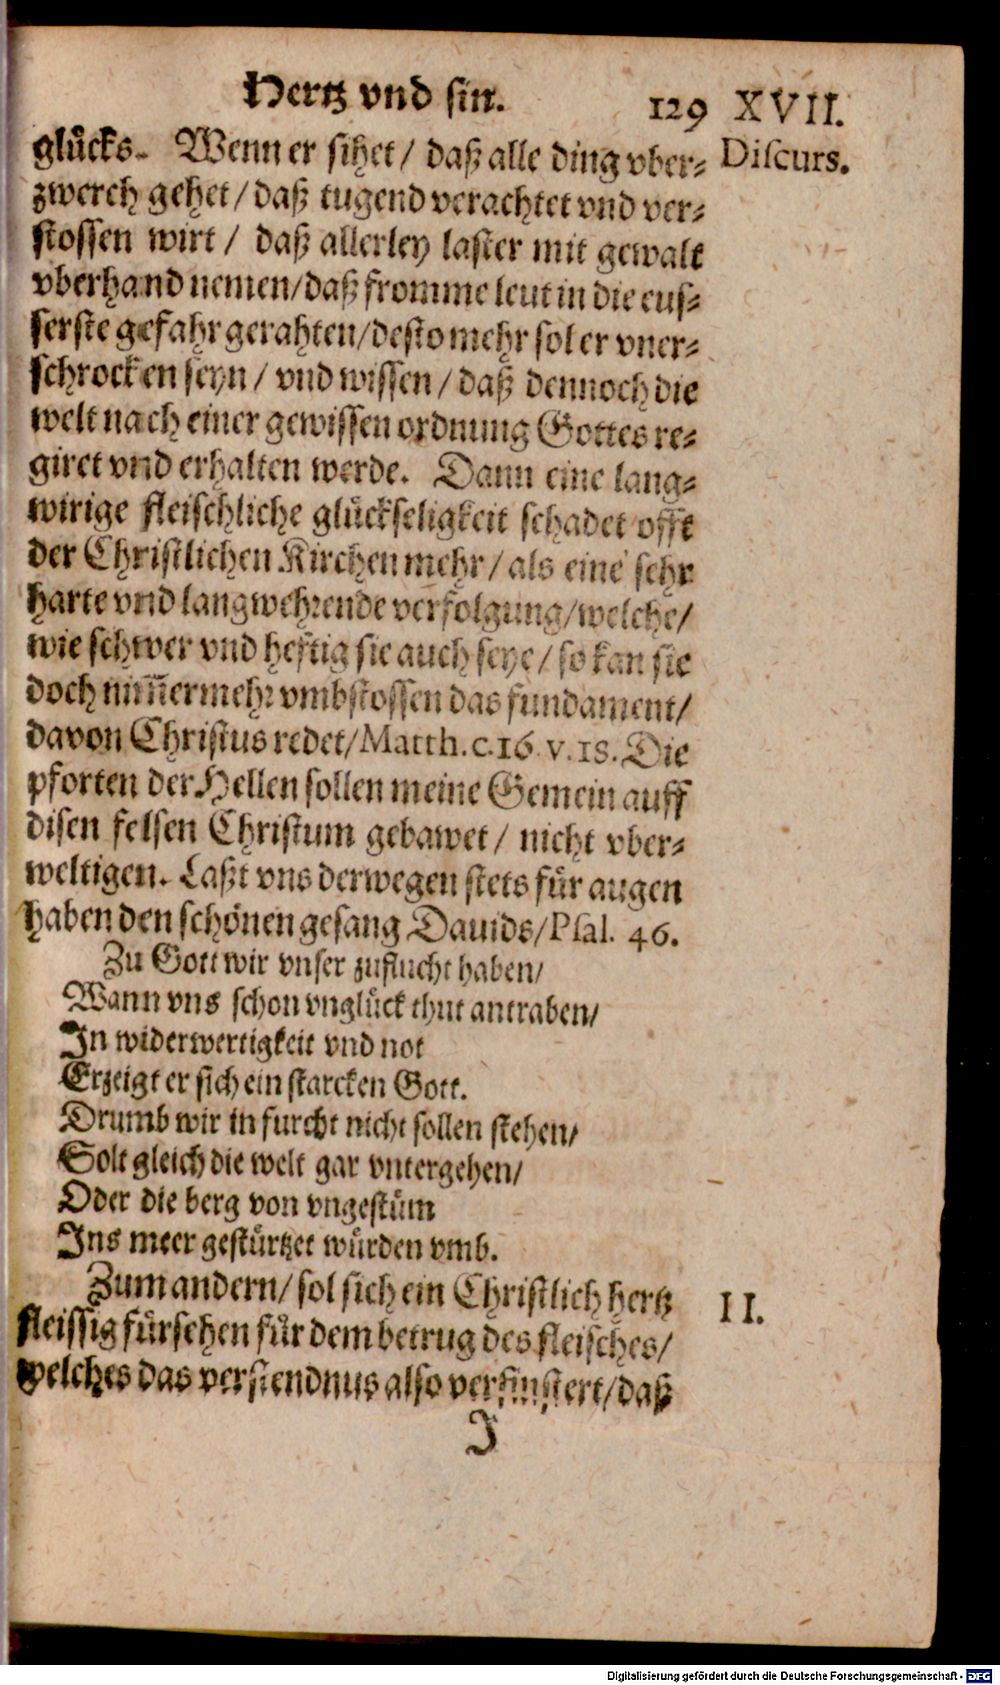 Hertz vnd sin̄. 129 XVII.
glu̍cks. Wenn er sihet / daß alle ding vber- Discurs.
zwerch gehet / daß tugend verachtet vnd ver-
stossen wirt / daß allerley laster mit gewalt
vberhand nemen/daß fromme leut in die eus-
serste gefahr gerahten/desto mehr sol er vner-
schrocken seyn / vnd wissen / daß dennoch die
welt nach einer gewissen ordnung Gottes re-
giret vnd erhalten werde. Dann eine lang-
wirige fleischliche glückseligkeit schadet offt
der Christlichen Kirchen mehr / als eine sehr
harte vnd langwehrende verfolgung/welche/
wie schwer vnd heftig sie auch seye / so kan sie
doch nim̄ermehr vmbstossen das fundament/
davon Christus redet/Matth.c.16.v.18. Die
pforten der Hellen sollen meine Gemein auff
disen felsen Christum gebawet / nicht vber-
weltigen. Laßt vns derwegen stets für augen
haben den schönen gesang Dauids/Psal. 46.
Zu Gott wir vnser zuflucht haben/
Wann vns schon vnglück thut antraben/
In widerwertigkeit vnd not
Erzeigt er sich ein starcken Gott.
Drumb wir in furcht nicht sollen stehen/
Solt gleich die welt gar vntergehen/
Oder die berg von vngestüm
Ins meer gestürtzet würden vmb.
Zum andern/ sol sich ein Christlich hertz II.
fleissig fürsehen für dem betrug des fleisches/
welches das verstendnus also verfinstert/daß
J
Digitalisierung gefördert durch die Deutsche Forschungsgemeinschaft - DFG